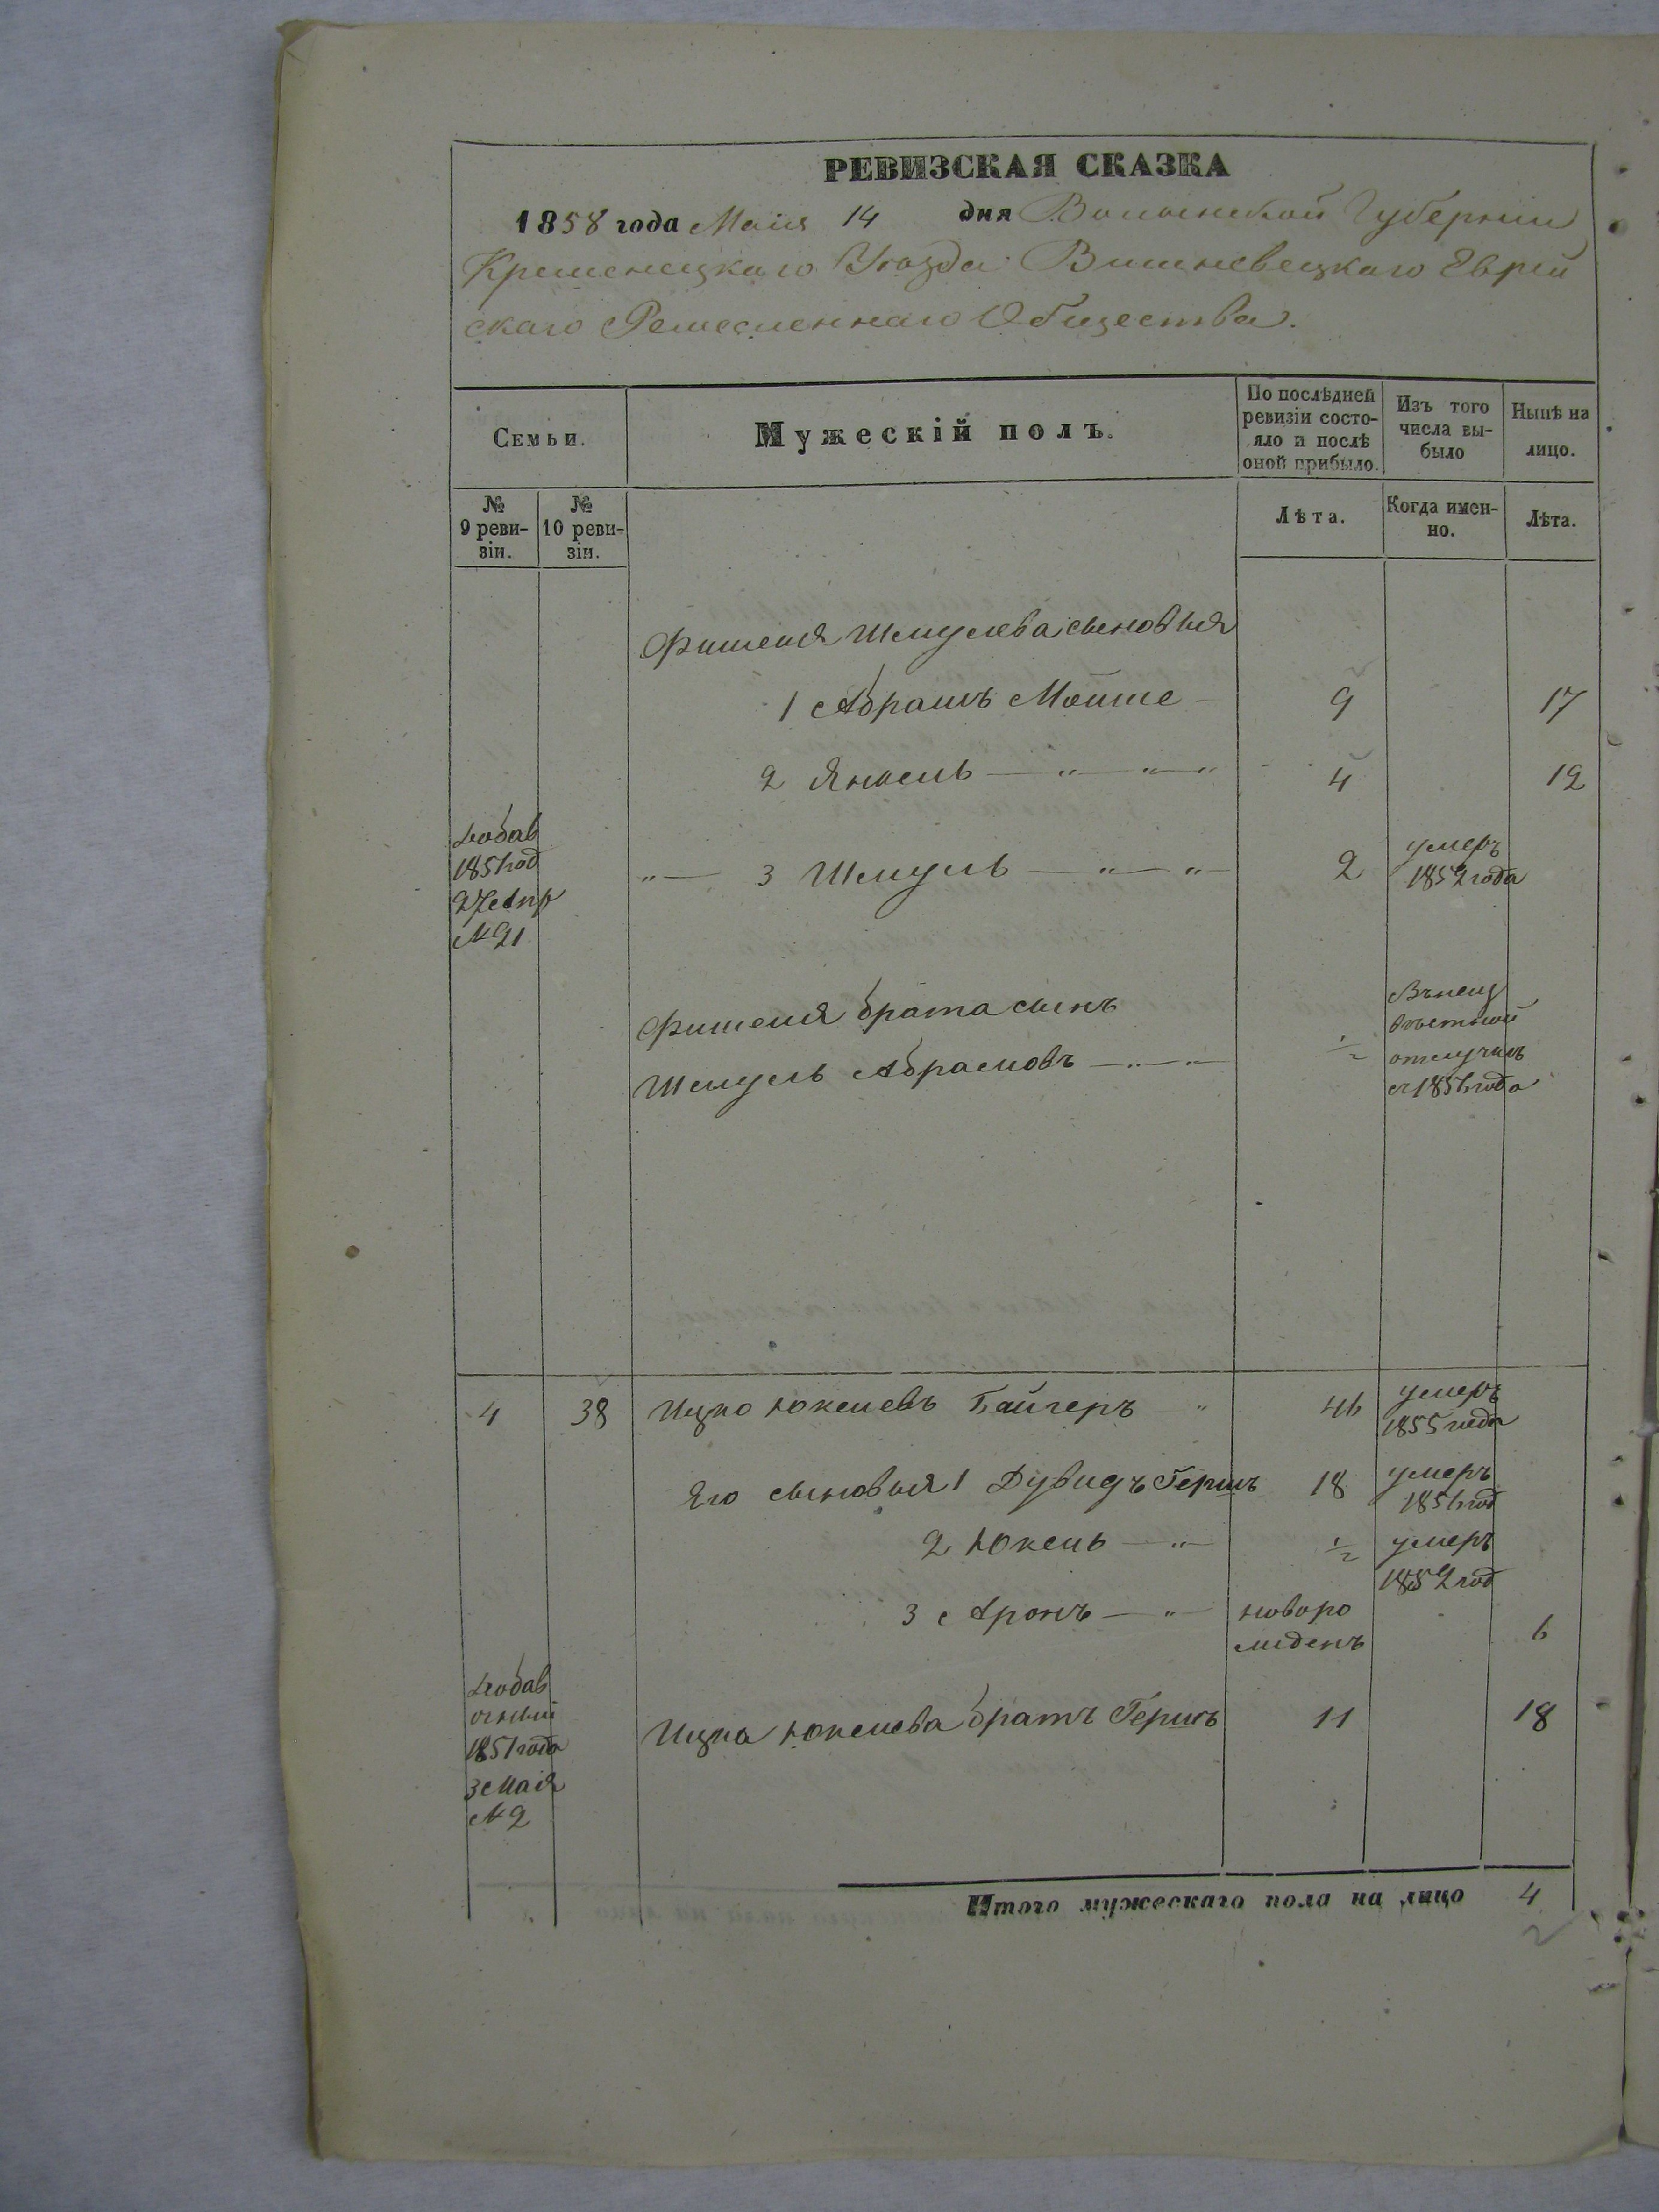 РЕВИЗСКАЯ СКАЗКА
1858 года Маия 14 дня Волынской Губернии
Кременецкаго Уезда Вишневецкаго Еврей
скаго Ремесленнаго Общества.
Семьи.
Мужескій полъ.
По послѣдней
ревизіи состо-
яло и послѣ
оной прибыло.
Изъ того
числа вы-
было
Нынѣ на
лицо.
№
9 реви-
зіи.
№
10 реви-
зіи.
Лѣта.
Когда имен-
но.
Лѣта.
Фишеля Шмулева сыновья
1 Абрамъ Мошие 9 17
2 Янкель — " — " — " 4 12
добав
1851 год
27 сотнр
№ 21
" — 3 Шмуль — " — " — 2 умеръ
1852 года
Фишеля брата сынъ
Шмуль Абрамовъ — " — " — 1/2
Въ неиз
вѣстной
отлучкѣ
съ 1856 года
4 38 Ицко Юкелевъ Байгеръ " 46 умеръ
1855 года
Его сыновья 1 Дувидъ Гершъ 18 умеръ
1856 год
2 Юкель — " — 1/2 умеръ
1852 год
3 Аронъ — " — новоро
жденъ 6
добав
очный
1851 года
3 Маія
№ 2
Ицка Юкелева братъ Гершъ 11 18
Итого мужескаго пола на лицо 4